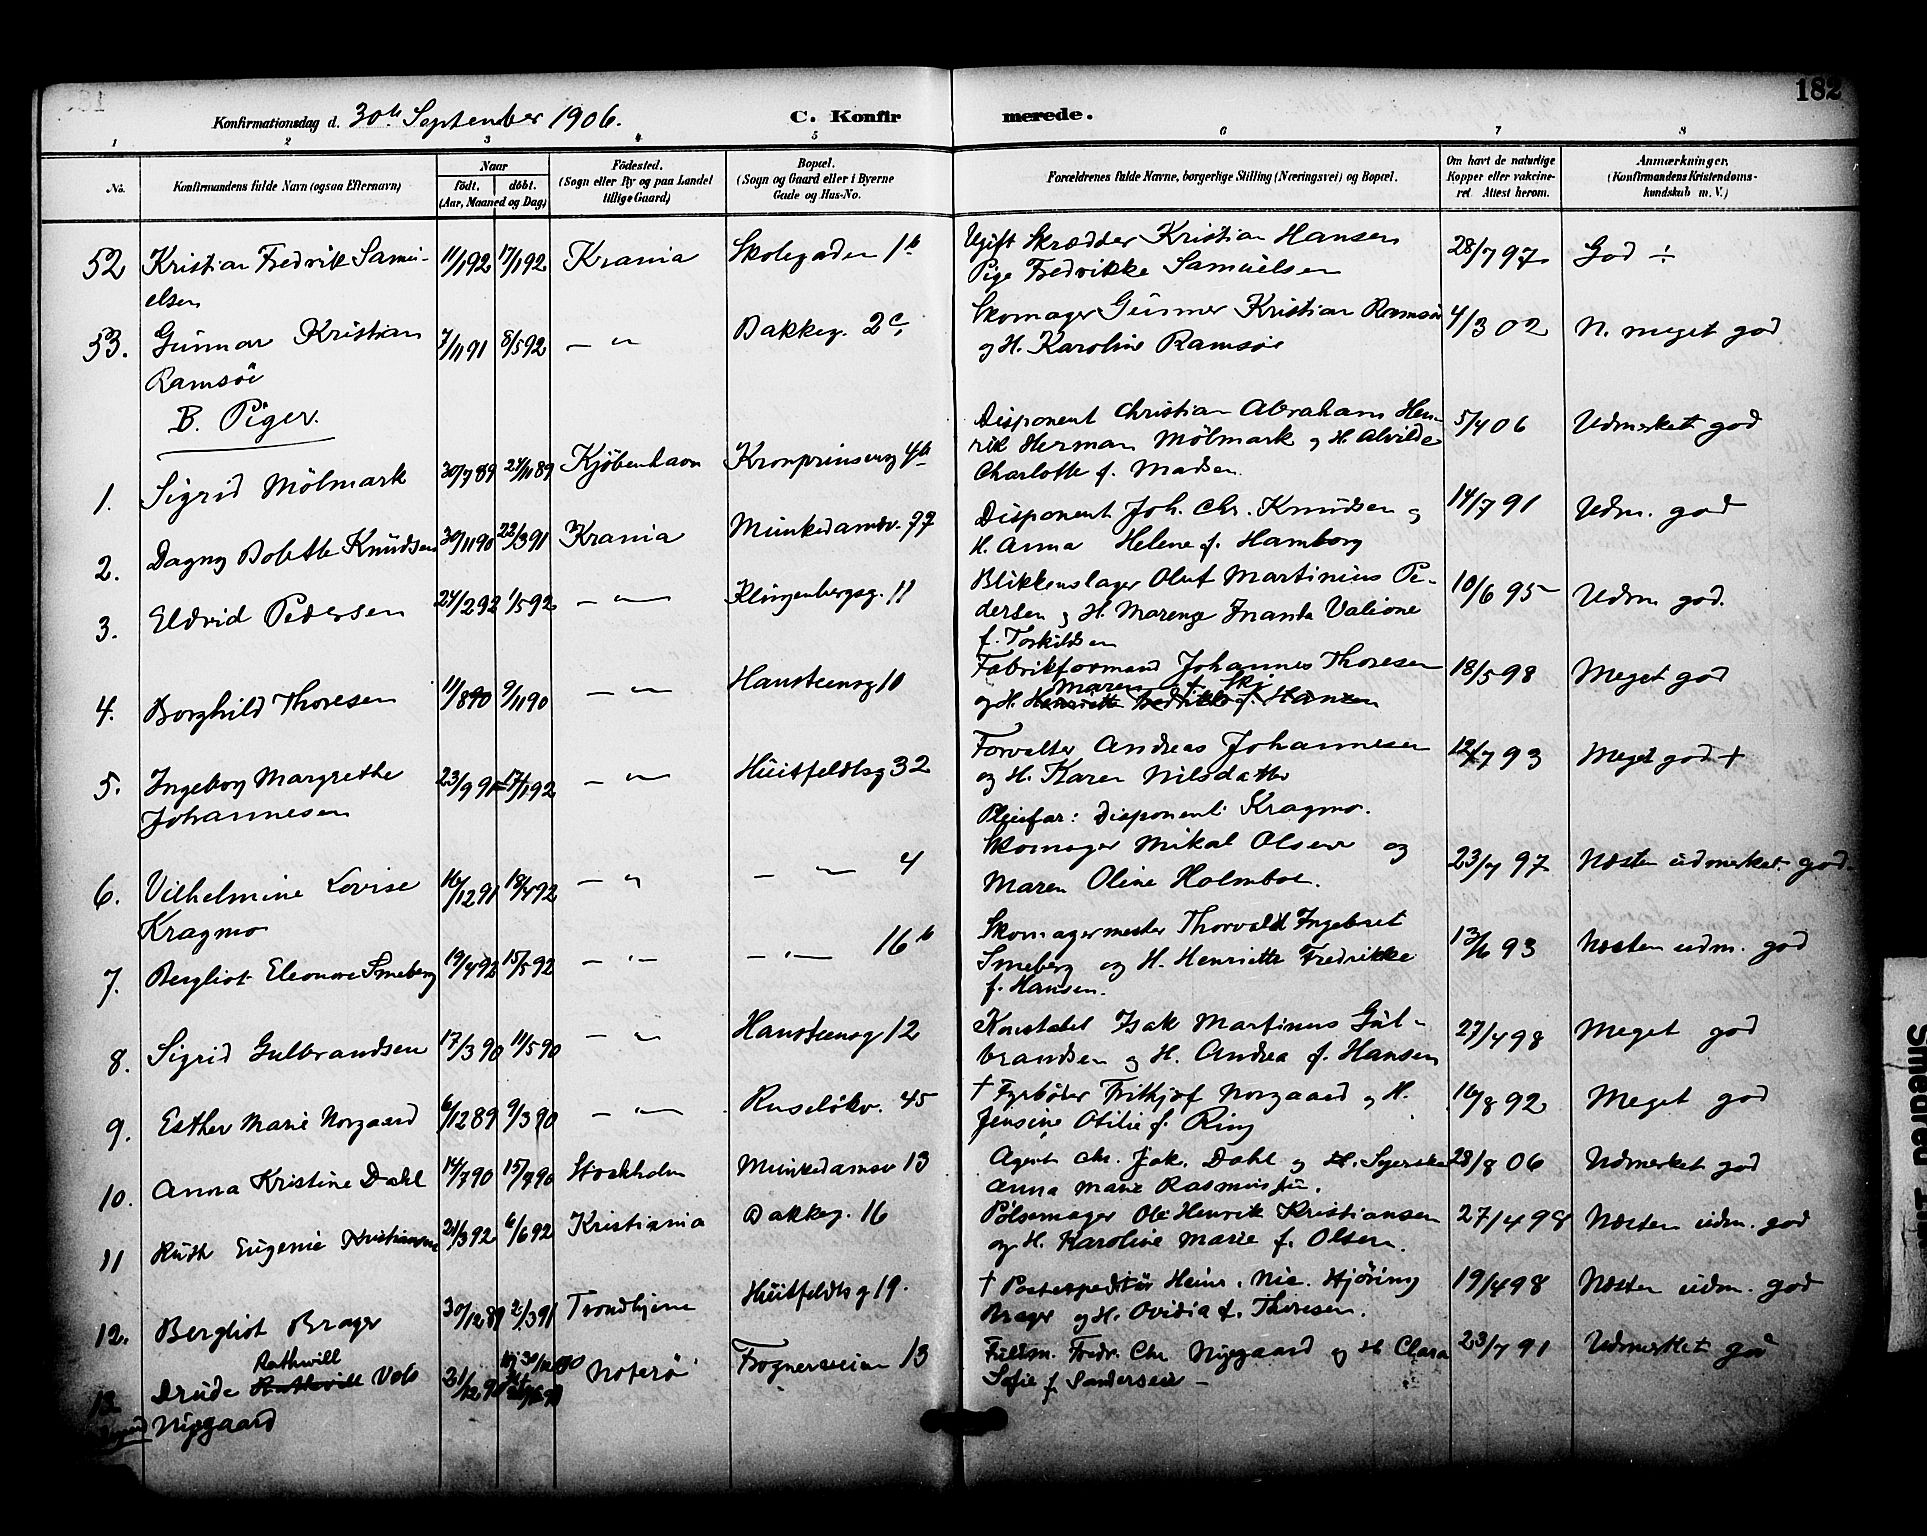 182
Konfirmationsdag d. 30te September 1906.
C. Konfir merede.
1 2 3 4 5 6 7 8
No.
Konfirmandens fulde Navn (ogsaa Efternavn)
Naar
født. døbt.
(Aar, Maaned og Dag)
Födested.
(Sogn eller By og paa Landet
tillige Gaard)
Bopæl.
(Sogn og Gaard eller i Byerne
Gade og Hus-No.
Forældrenes fulde Navne, borgerlige Stilling (Næringsvei) og Bopæl.
Om havt de naturlige
Kopper eller vakcine-
ret Attest herom.
Anmærkninger,
(Konfirmandens Kristendoms-
kundskab m. V.)
52 Kristian Fredrik Samu-
elsen
11/1 92 17/1 92 Krania Skolegaden 1b
Ugift Skrædder Kristian Hansen
Pige Fredrikke Samuelsen
28/7 97 God ÷
53. Gunnar Kristian
Ramsöe
7/11 91 8/5 92 — " — Bakkeg. 2c,
Skomager Gunner Kristian Ramsöe
og H. Karoline Ramsöe
4/3 02 N. meget god
B. Piger.
1. Sigrid Mölmark 30/7 89 24/11 89 Kjöbenhavn Kronprinseng 4b
Disponent Christian Abraham Hen-
rik Herman Mölmark og H Alvilde
Charlotte f. Madsen.
5/4 06 Udmerket god
2. Dagny Bolette Knudsen 30/11 90 22/3 91 Krania Munkedamsv. 77
Disponent Joh. Chr. Knudsen og
H. Anna Helene f. Hamborg
14/7 91 Udm. god
3. Eldrid Pedersen 24/2 92 1/5 92 — " — Klingenbergsg. 11
Blikkenslager Oluf Martinius Pe-
dersen og H. Marenze Inanda Valione
f. Torkildsen
10/6 95 Udm god.
4. Borghild Thoresen 11/8 90 9/11 90 — " — Hansteensg 10
Fabrikformand Johannes Thoresen
Maren f. Ski
og H. Henriette Fredrikke f. Hansen
18/5 98 Meget god
5. Ingeborg Margrethe
Johannesen
23/9 91 17/1 92 — " — Huitfeldtsg 32
Forvalter Andreas Johannesen
og H. Karen Nilsdatter
12/7 93 Meget god +
Pleiefar: Disponent Kragmo.
6. Vilhelmine Lovise
Kragmo
16/12 91 18/4 92 — " — — " — 4
Skomager Mikal Olsen og
Maren Oline Holmboe.
23/7 97 Næsten udmerket god
7. Bergliot Eleonore Smeberg 19/4 92 15/5 92 — " — — " — 16b
Skomagermester Thorvald Ingebret
Smeberg og H. Henriette Fredrikke
f. Hansen.
13/6 93 Næsten udm. god
8. Sigrid Gulbrandsen 17/3 90 11/5 90 — " — Hansteensg 12
Konstabel Isak Martinus Gul-
brandsen og H. Andrea f. Hansen
27/4 98 Meget god
9. Esther Marie Norgaard 6/12 89 9/3 90 — " — Ruselökv. 45
† Fyrböter Frithjof Norgaard og H.
Jensine Otilie f. Ring
16/8 92 Meget god
10. Anna Kristine Dahl 14/7 90 15/9 90 Stockholm Munkedamsv 13
Agent Chr. Jak. Dahl og H. Syerske
Anna Marie Rasmussen.
28/8 06 Udmerket god
11 Ruth Eugenie Kristiansen 21/3 92 6/6 92 Kristiania Bakkeg. 16
Pölsemager Ole Henrik Kristiansen
og H. Karoline Marie f. Olsen.
27/4 98 Næsten udm. god
12. Bergliot Brager 30/12 89 2/3 91 Trondhjem Huitfeldtsg 19.
† Postexpeditör Heinr. Nic. Hjöring
Brager og H. Ovidia f. Thoresen.
19/4 98 Næsten udm. god
13 Drude Rathwill Vels
Nygaard
21/12 90 Noterö Frognerveien 13
Fuldm. Fredr. Chr Nygaard og H Clara
Sofie f Sandersen —
23/7 91 Udmerket god